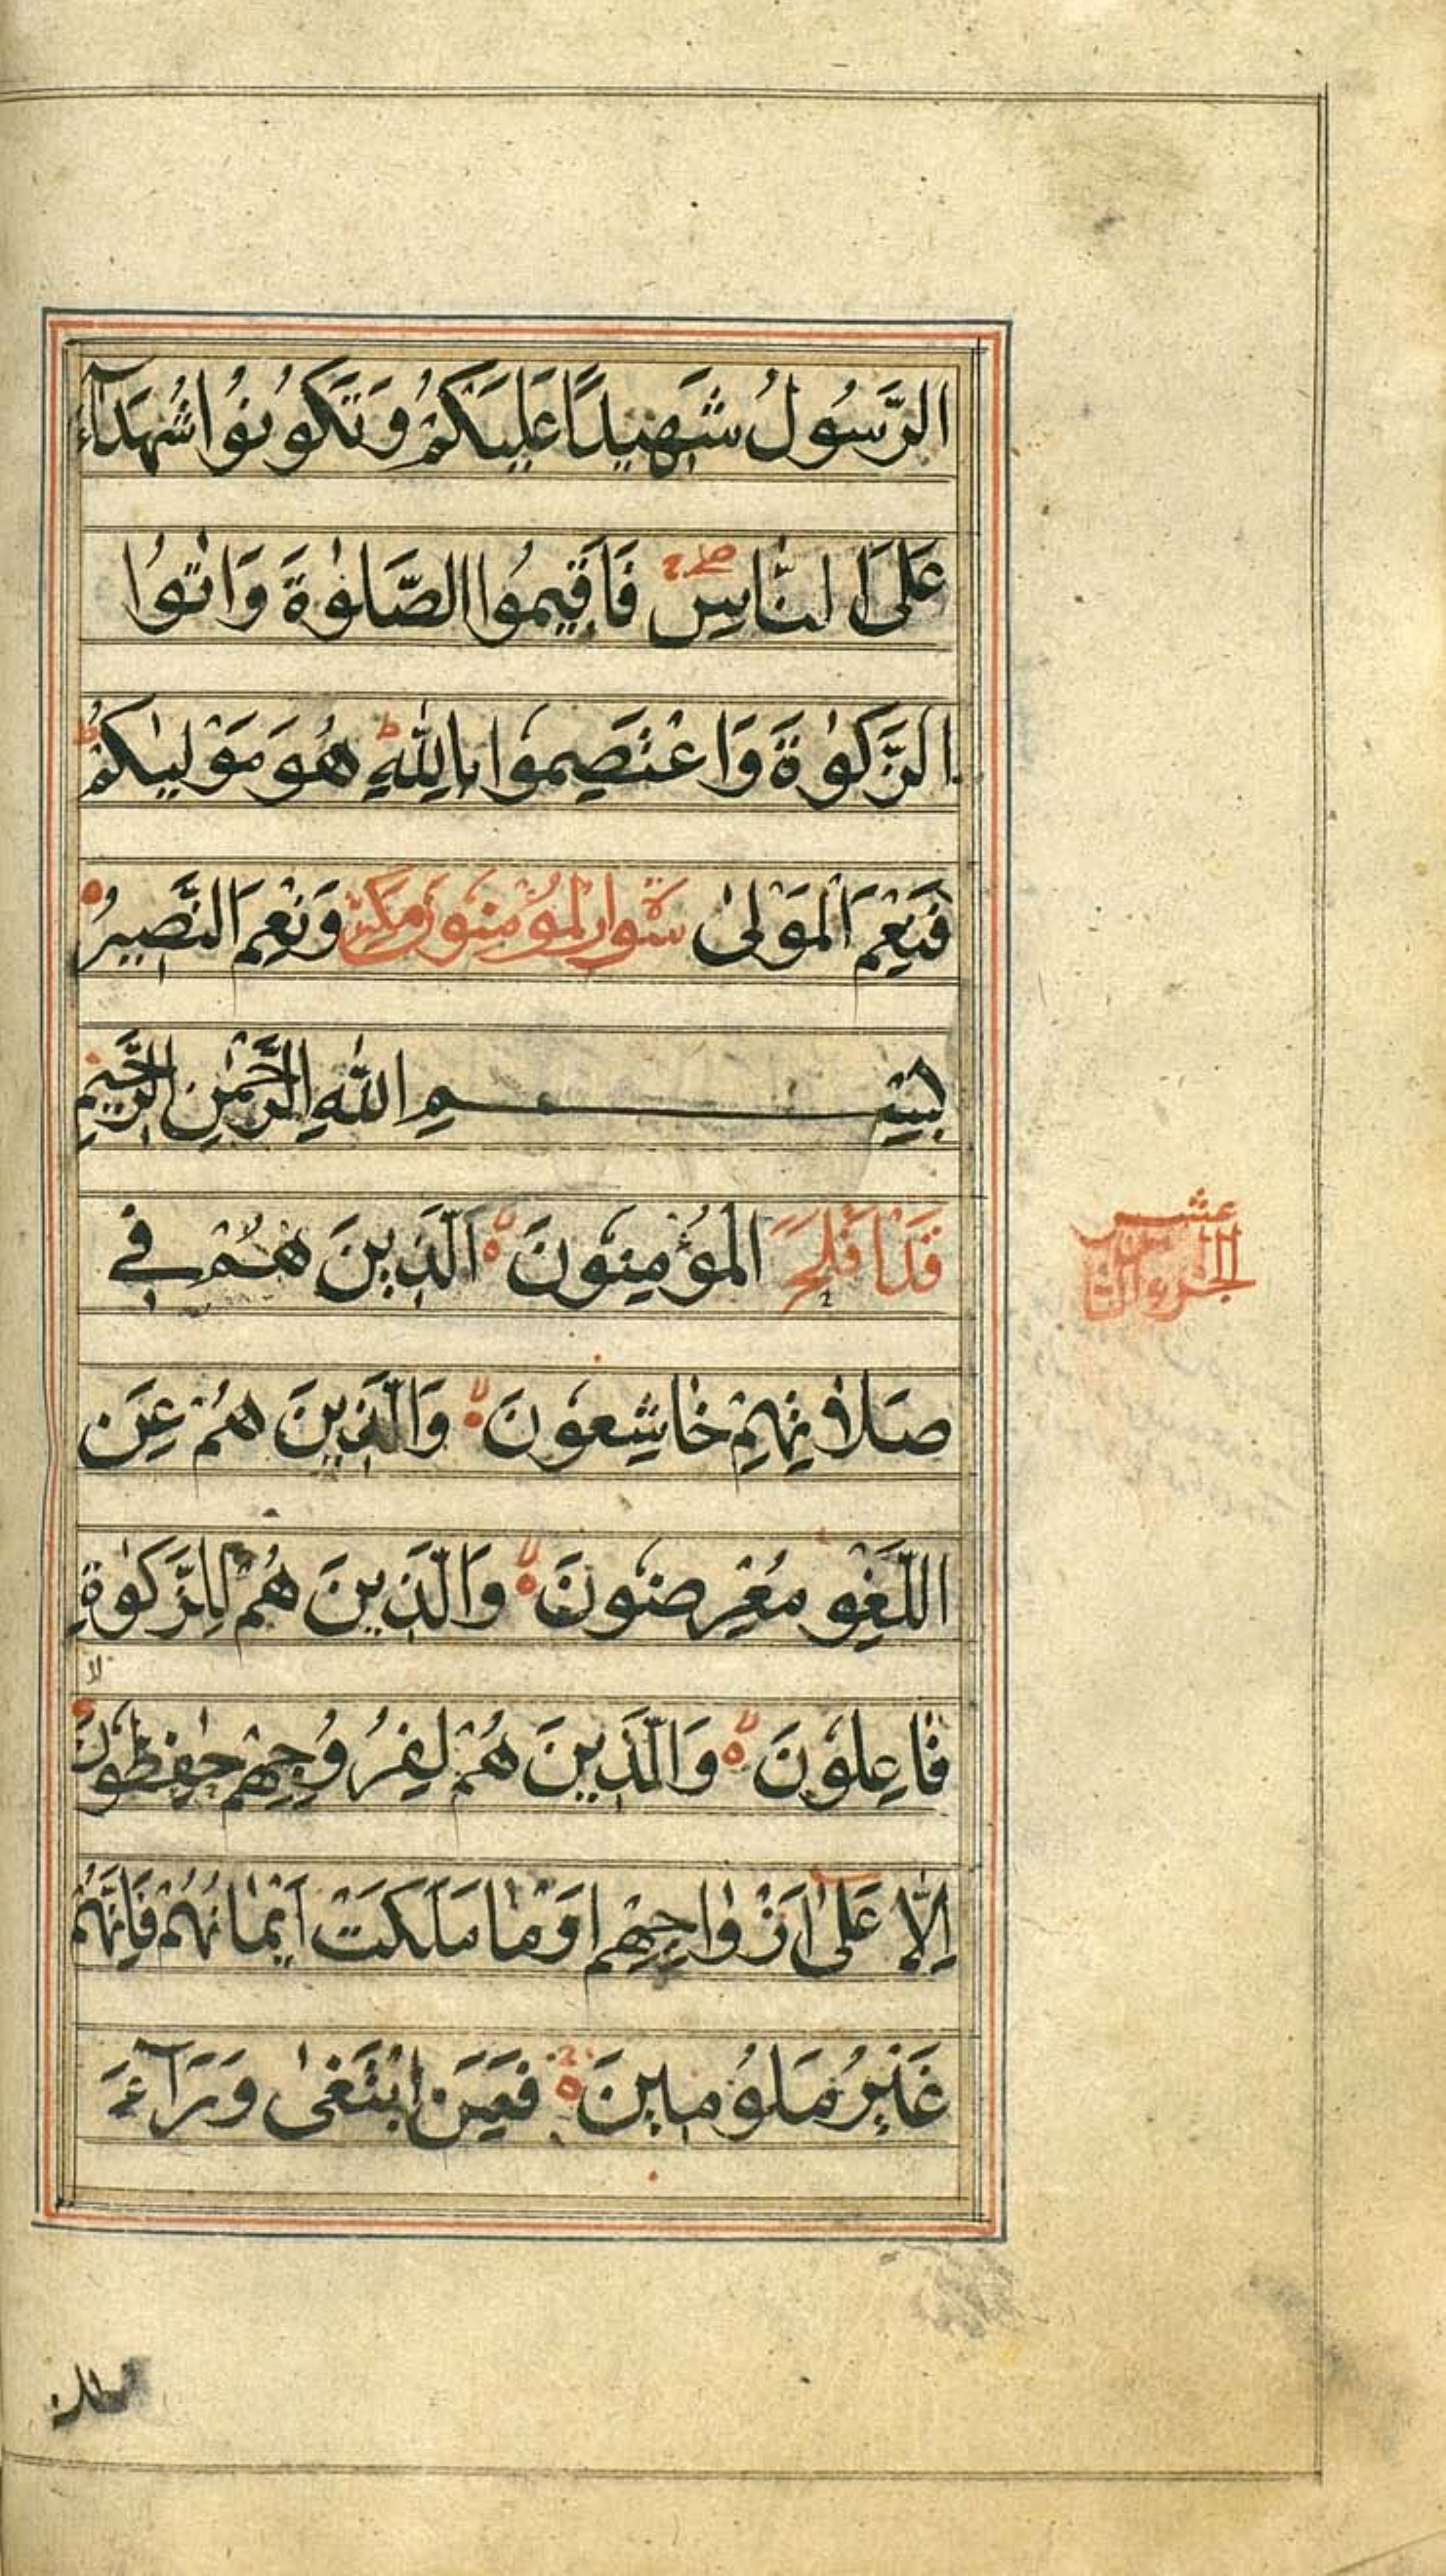 الرَّسُولُ شَهِيدًا عَلَيْكُمْ وَتَكُونُوا شُهَدَآءَ
عَلَى النَّاسِ فَاَقِيمُوا الصَّلٰوةَ وَاٰتُوا
الزَّكٰوةَ وَاعْتَصِمُوا بِاللّٰهِ هُوَ مَوْلٰيكُمْ
فَنِعْمَ الْمَوْلٰى سورة المؤمنون مكية وَنِعْمَ النَّصِيرُ
بِسْمِ اللّٰهِ الرَّحْمٰنِ الرَّحِيمِ
قَدْ اَفْلَحَ الْمُؤْمِنُونَ اَلَّذِينَ هُمْ فِي
صَلَاتِهِمْ خَاشِعُونَ وَالَّذِينَ هُمْ عَنِ
اللَّغْوِ مُعْرِضُونَ وَالَّذِينَ هُمْ لِلزَّكٰوةِ
فَاعِلُونَ وَالَّذِينَ هُمْ لِفُرُوجِهِمْ حٰفِظُونَ
اِلَّا عَلٰى اَزْوَاجِهِمْ اَوْ مَا مَلَكَتْ اَيْمَانُهُمْ فَاِنَّهُمْ
غَيْرُ مَلُومِينَ فَمَنِ ابْتَغٰى وَرَآءَ
الجزء الثامن
عشر